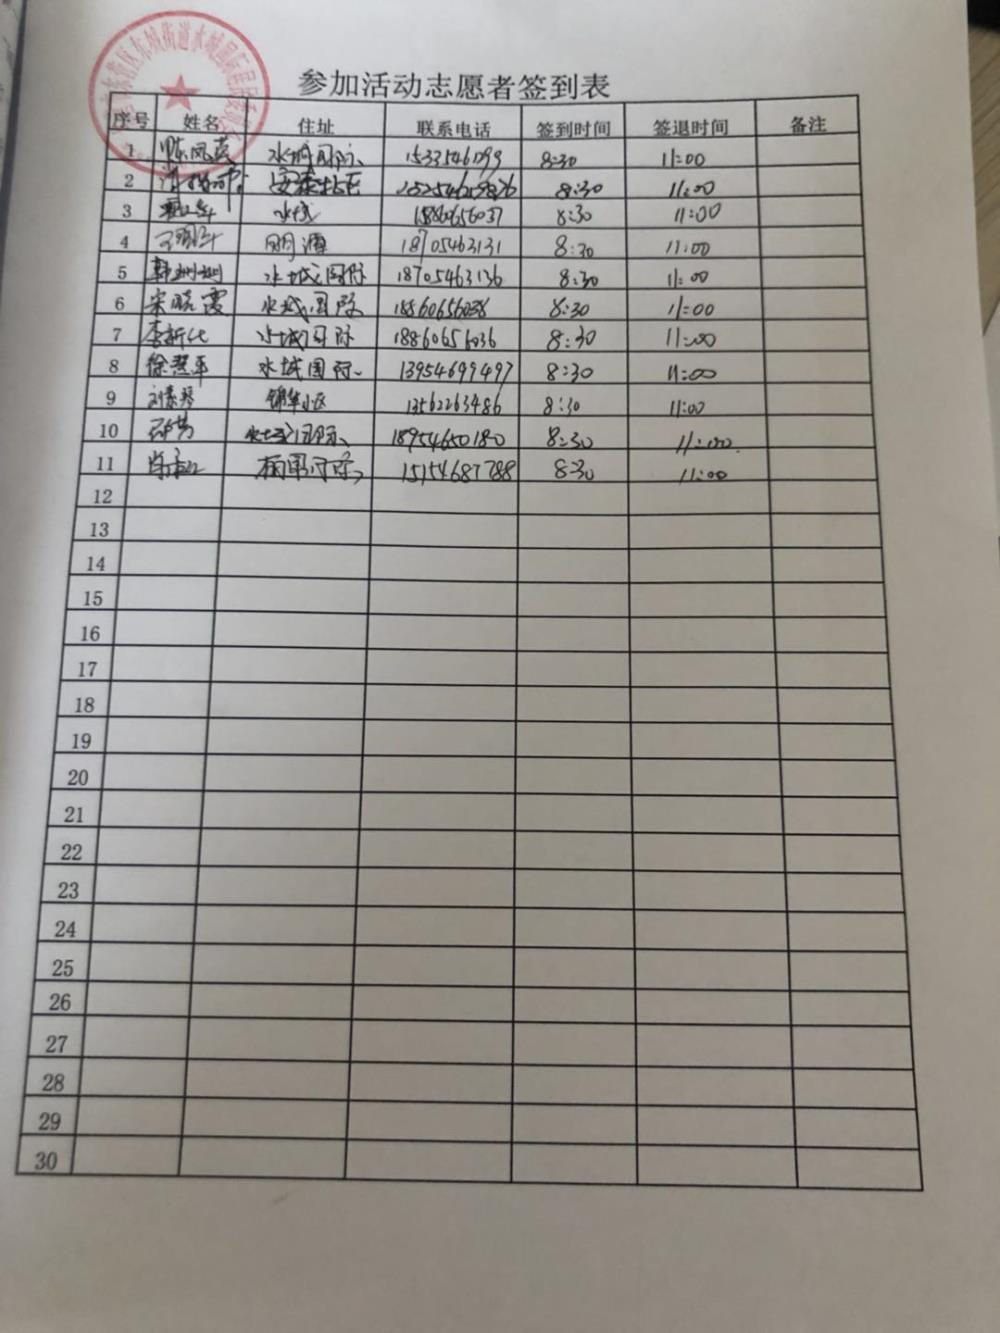 参加活动志愿者签到表
序号 姓名 住址 联系电话 签到时间 签退时间 备注
1 陈凤英 水城国际 8:30 11:00
2 8:30 11:00
3 水城 15860656037 8:30 11:00
4 明源 18705463131 8:30 11:00
5 韩姗姗 水城国际 18705463136 8:30 11:00
6 宋晓霞 水城国际 18860656038 8:30 11:00
7 李新化 水城国际 18860656036 8:30 11:00
8 徐慧平 水城国际 13954699497 8:30 11:00
9 刘素琴 锦华小区 13562263486 8:30 11:00
10 水城国际 18954650180 8:30 11:00
11 15154687788 8:30 11:00
12
13
14
15
16
17
18
19
20
21
22
23
24
25
26
27
28
29
30